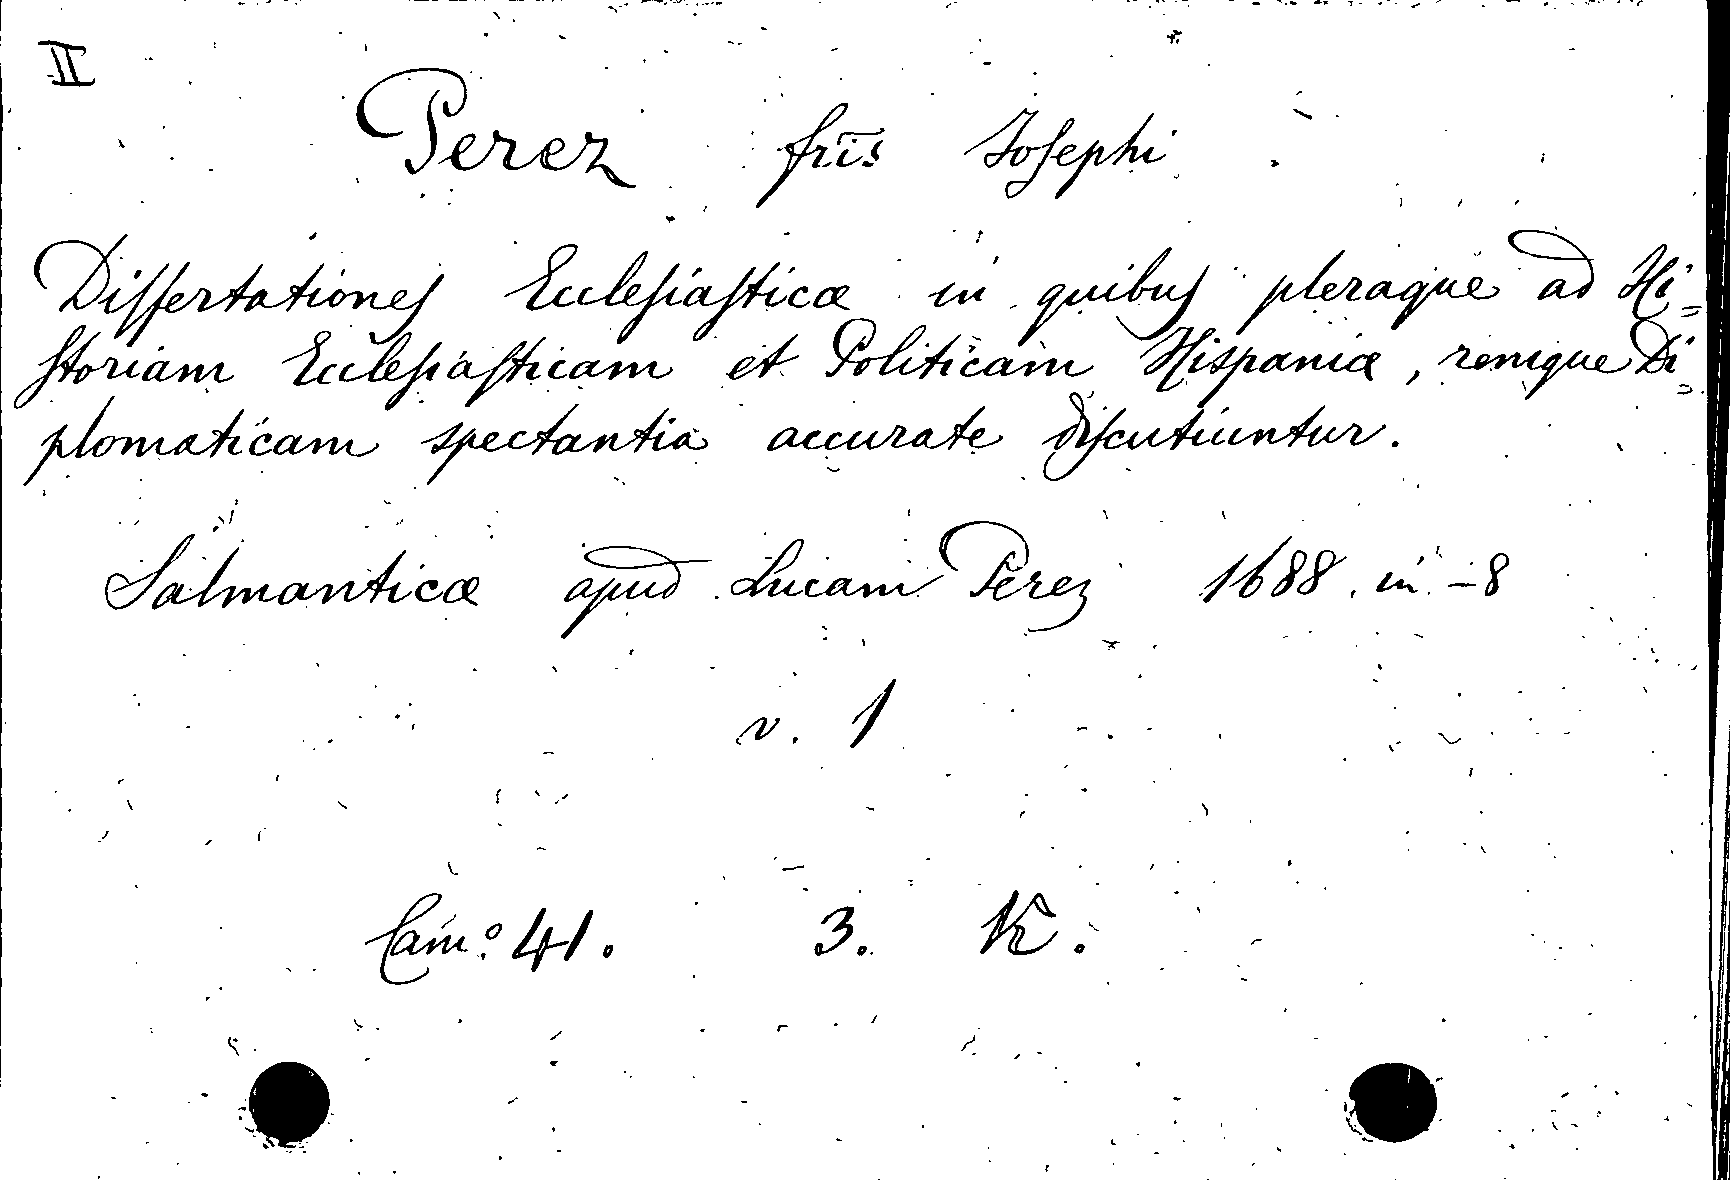 II
Perez fr̄is Josephi
Dissertationes Ecclesiasticæ in quibus pleraque ad Hi=
storiam Ecclesiasticam et Politicam Hispaniæ, remque Di=
plomaticam spectantia accurate discutiuntur.
Salmanticæ apud Lucam Perez 1688. in-8
v. 1
Cam.º 41. 3. K.